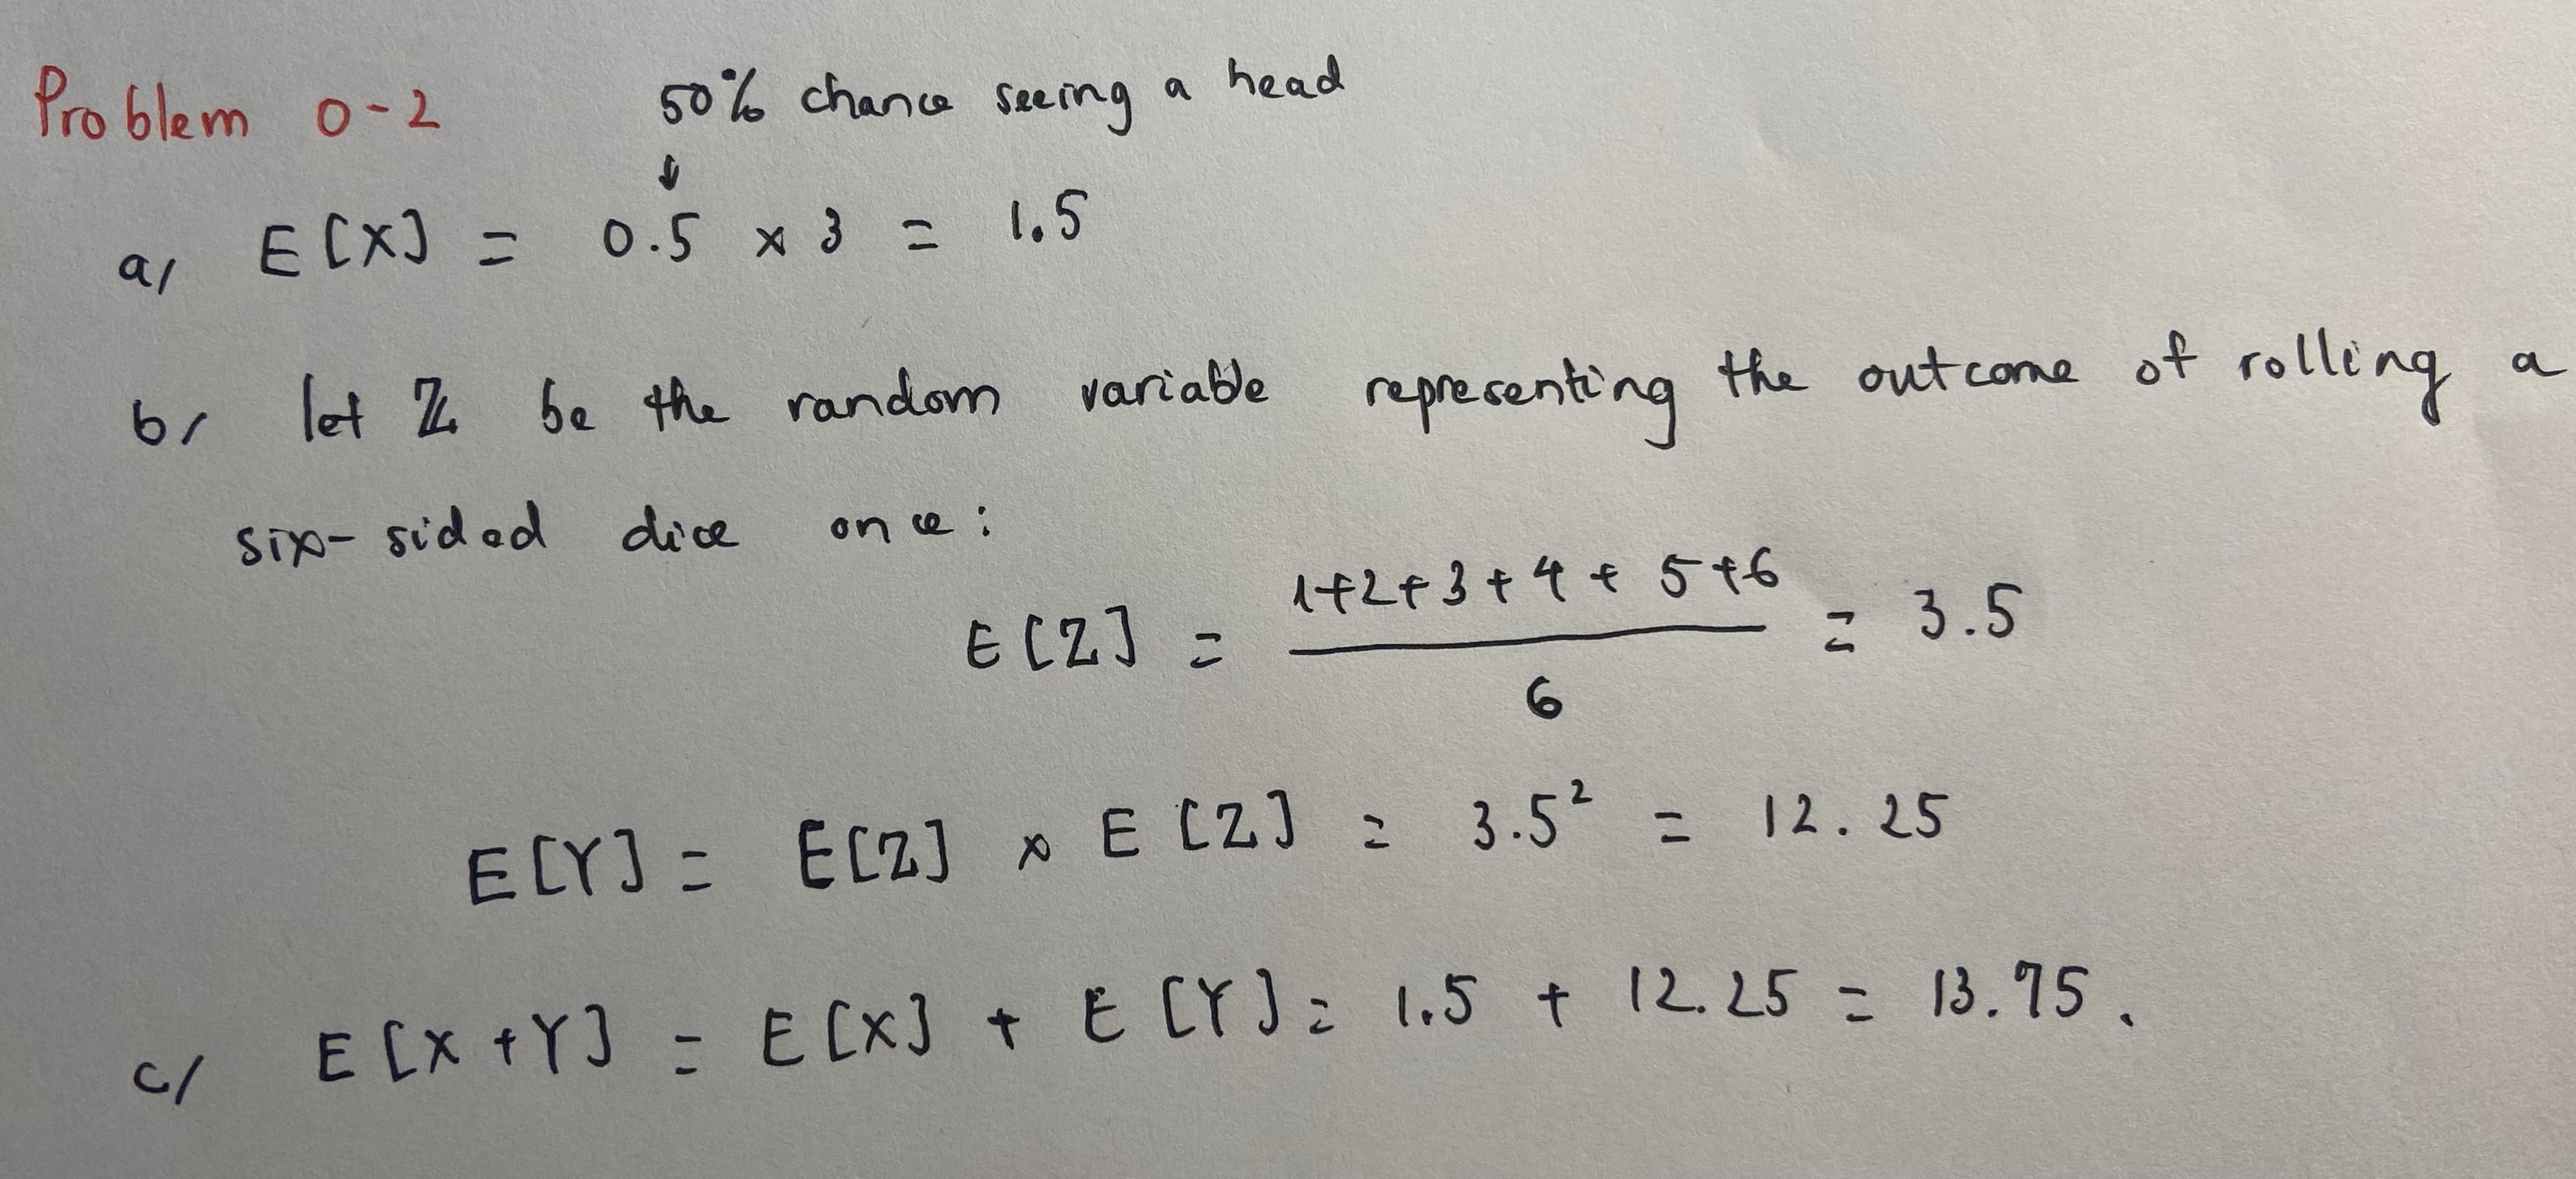 Problem 0-2
50% chance seeing a head
↓
a/ E[X] = 0.5 × 3 = 1.5
b/ let ℤ be the random variable representing the outcome of rolling a
six-sided dice once:
E[Z] = (1+2+3+4+5+6)/6 = 3.5
E[Y] = E[Z] × E[Z] = 3.5² = 12.25
c/ E[X+Y] = E[X] + E[Y] = 1.5 + 12.25 = 13.75.